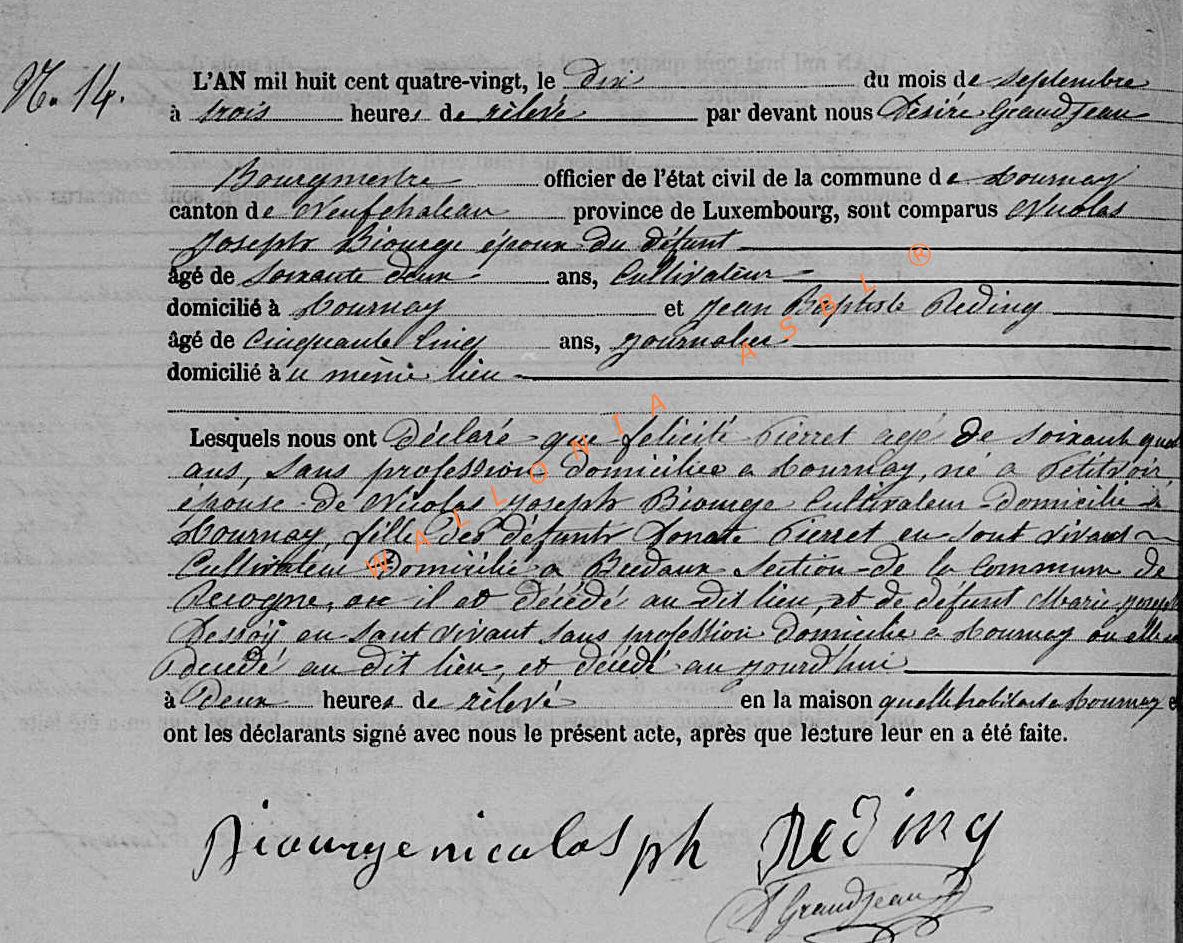 N.o 14.
L'AN mil huit cent quatre-vingt, le dix du mois de septembre
à trois heures de rélevé par devant nous Désiré Grandjean
Bourgmestre officier de l'état civil de la commune de Tournay
canton de Neufchateau province de Luxembourg, sont comparus Nicolas
Joseph Biourge époux du défunt
âgé de soixante deux ans, Cultivateur
domicilié à Tournay et Jean Baptiste Reding
âgé de Cinquante Cinq ans, journalier
domicilié à u même lieu
Lesquels nous ont Déclaré que félicité Pierret agé de soixante
ans, sans profession domiciliée a Tournay, né a Petitvoir
épouse de Nicolas joseph Biourge Cultivateur Domicilié à
Tournay, fille des défunts Donate Pierret en sont vivant
Cultivateur Domicilié a Section de la Commune de
Recogne, ou il est décédé au dit lieu, et de défunt Marie joseph
en sont vivant sans profession domicilié a Tournay ou elle
décédé au dit lieu, et décédé au jourd'hui
à Deux heures de rélevé en la maison quelle habitait a Tournay e
ont les déclarants signé avec nous le présent acte, après que lecture leur en a été faite.
Biourge nicolas jph Reding
D Grandjean
WALLONIA ASBL ®